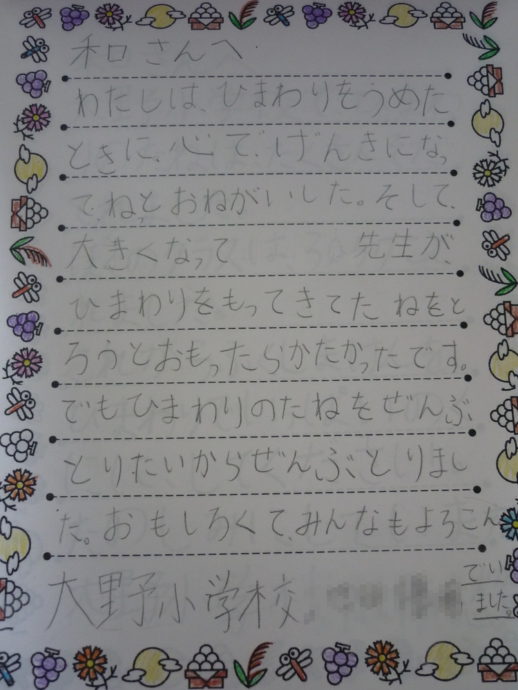 和口さんへ
わたしは、ひまわりをうめた
ときに、心で、げんきになっ
てねっとおねがいした。そして、
大きくなって 先生が、
ひまわりをもってきてたねをと
ろうとおもったらかたかったです。
でもひまわりのたねをぜんぶ、
とりたいからぜんぶ、とりまし
た。おもしろくて、みんなもよろこん
でい
ました。
大野小学校